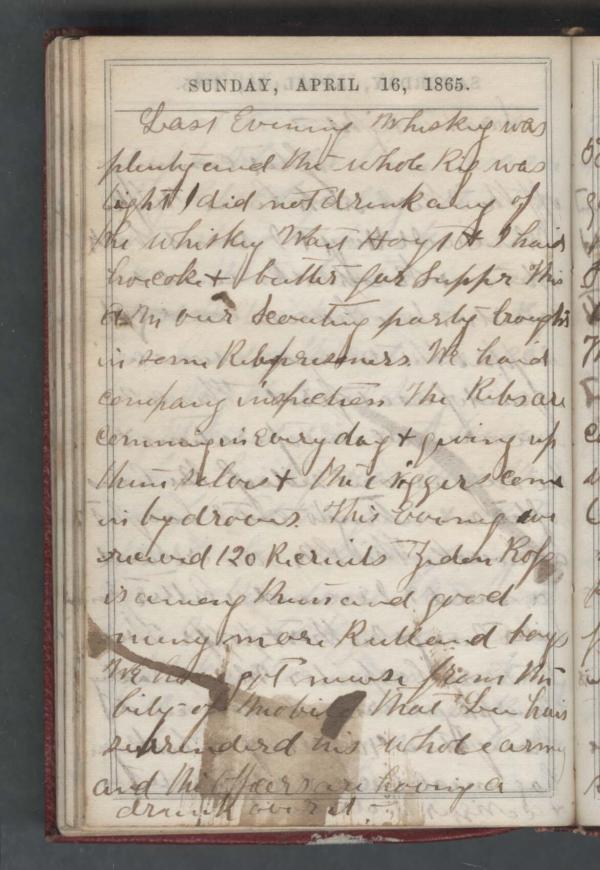 SUNDAY, APRIL 16, 1865.
Last Evening Whiskey was
plenty and the whole Rig was
tight I did not drink any of
the whiskey Wait Hoyt & I had
hoecoke + butter for Supper This
A.M our Scouting party brought
in some Reb prisoners We had
company inspection The Rebs are
comming in Every day + giving up
themselves + the niggers come
in by droves. This Evening we
received 120 Recruits
is among them and good
many more Rutland boys
We have got news from the
city of Mobile that Lee has
surrenderd his whole army
and the officers are having a
drunk over it